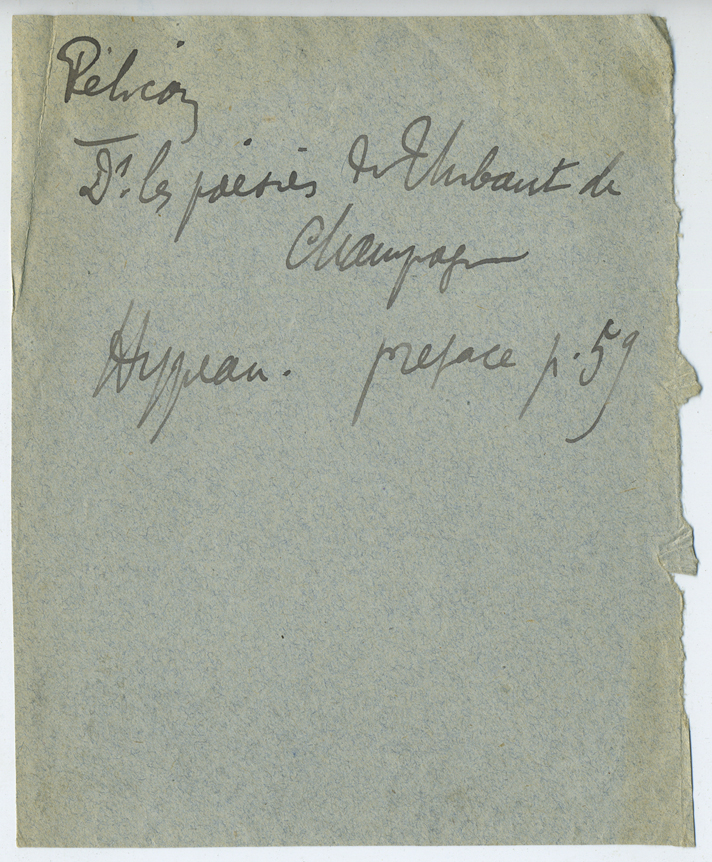 Pélican
Ds. les poésies de Thibaut de
Champagne
Hippeau. préface p. 59